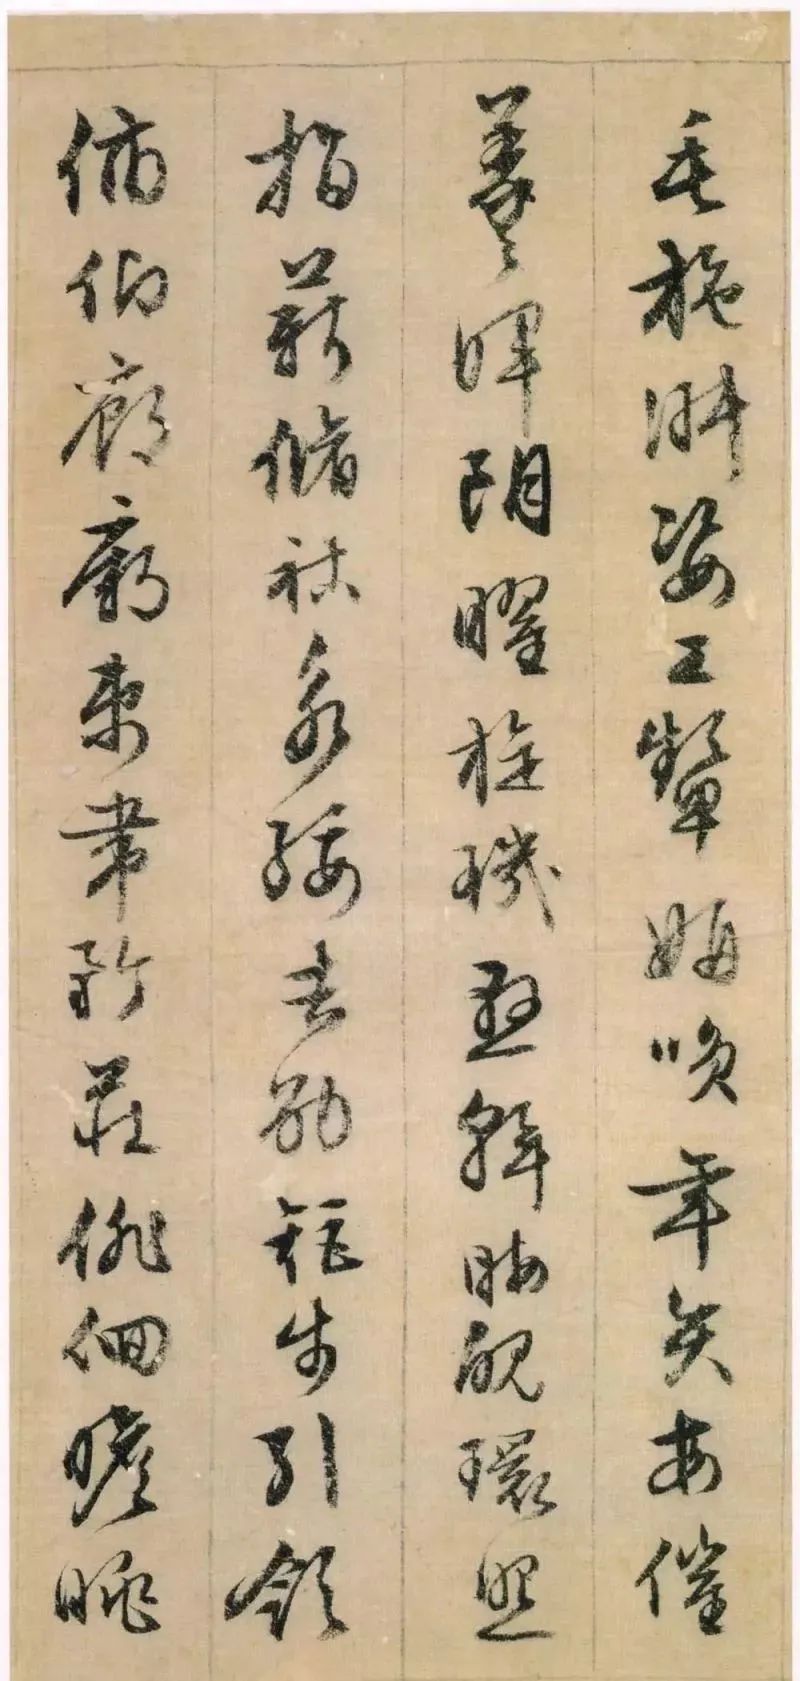 毛施淑姿工顰妍咲年矢每催
羲暉朗曜旋璣懸斡晦魄環照
指薪脩祜永綏吉劭矩步引領
俯仰廊廟束帶矜莊俳佪瞻眺